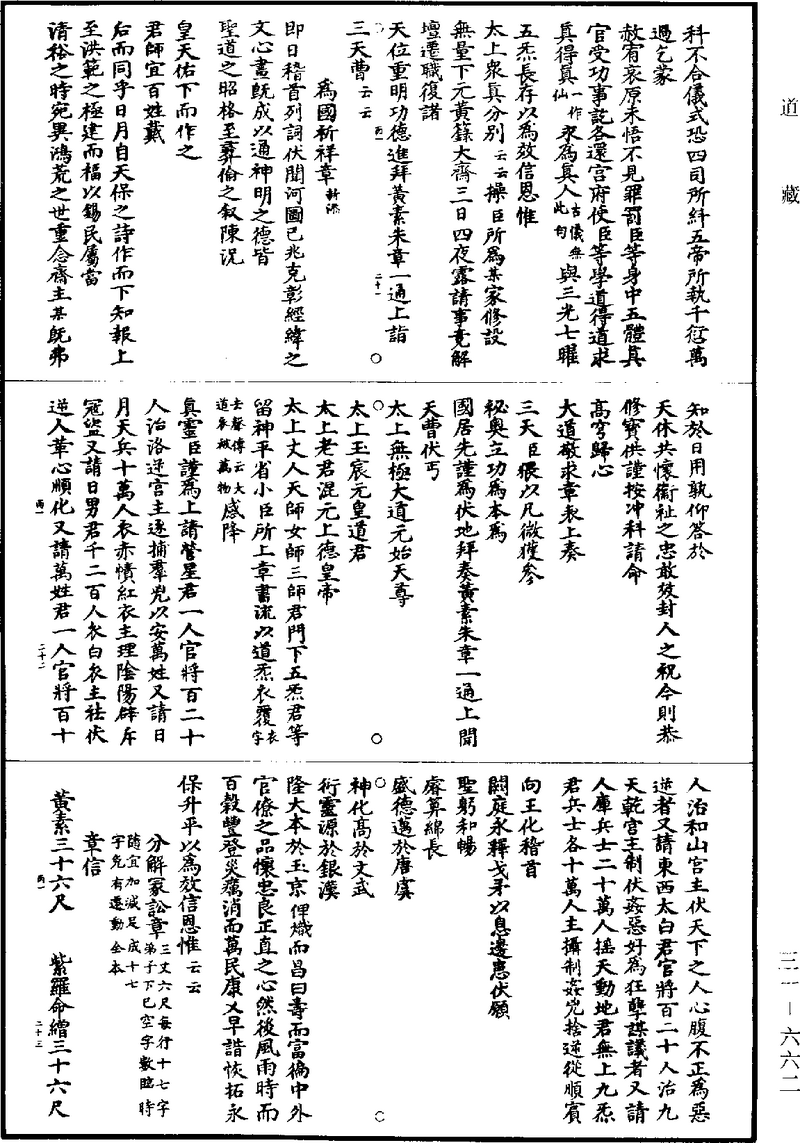 道藏
科不合儀式恐四司所糾五帝所執千愆萬
過乞蒙
赦宥哀原未悟不見罪罰臣等身中五體真
官受功事訖各還宮府使臣等學道得道求
真得真一作仙永為真人古儀無此句與三光七曜
五炁長存以為效信恩惟
太上衆真分別云云操臣所為某家修設
無量下元黃籙大齋三日四夜露請事竟解
壇遷職復諸
天位重明功德進拜黃素朱章一通上詣
三天曹云云
二十一
為國祈祥章新添
即日稽首列詞伏聞河圖已兆克彰經緯之
文心畫旣成以通神明之德皆
聖道之昭格至彛倫之敘陳況
皇天佑下而作之
君師宜百姓戴
后而同乎日月自天保之詩作而下知報上
至洪範之極建而福以錫民屬當
清裕之時宛異鴻荒之世重念齋主某旣弗
知於日用孰仰答於
天休共懷衞祉之忠敢效封人之祝今則恭
修寶供謹按冲科請命
高穹歸心
大道敬求章表上奏
三天臣猥以凡微獲參
秘奧立功為本為
國居先謹為伏地拜奏黃素朱章一通上聞
天曹伏丐
太上無極大道元始天尊
太上玉宸元皇道君
太上老君混元上德皇帝
太上丈人天師女師三師君門下五炁君等
留神平省小臣所上章書流以道炁衣覆衣字
去聲傳云大道衣被萬物咸降
真靈臣謹為上請營星君一人官將百二十
人治洛逆宮主逐捕羣兇以安萬姓又請日
月天兵十萬人衣赤幘紅衣主理陰陽辟斥
寇盜又請日男君千二百人衣白衣主社伏
逆人革心順化又請萬姓君一人官將百十
二十二
人治和山宮主伏天下之人心腹不正為惡
逆者又請東西太白君官將百二十人治九
天乾宮主制伏姦惡好為狂孽謀議者又請
人庫兵士二十萬人搖天動地君無上九炁
君兵士各十萬人主攝制姦兇捨逆從順賓
向王化稽首
闕庭永釋戈矛以息邊患伏願
聖躬和暢
睿算綿長
盛德邁於唐虞
神化高於文武
衍靈源於銀漢
隆大本於玉京俾熾而昌曰壽而富徧中外
官僚之品懷忠良正直之心然後風雨時而
百穀豐登災癘消而萬民康乂早諧恢拓永
保升平以為效信恩惟云云
分解冢訟章三丈六尺每行十七字弟子下已空字數臨時
隨宜加減足成十七字先有遷動全本
章信
黃素三十六尺　紫羅命繒三十六尺
二十三
三一－六六二